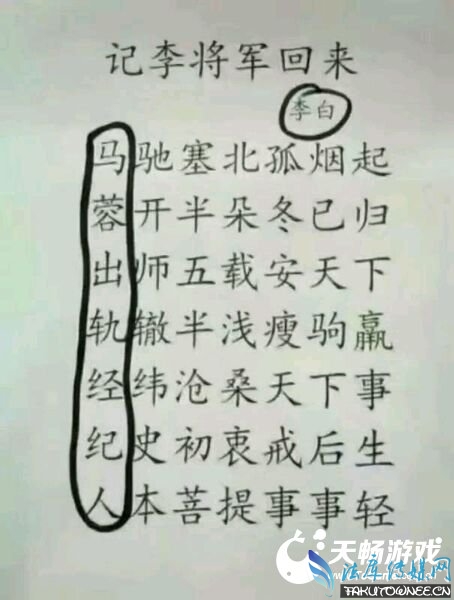 记李将军回来
李白
马驰塞北孤烟起
蓉开半朵冬已归
出师五载安天下
轨辙半浅瘦驹羸
经纬沧桑天下事
纪史初衷戒后生
人本菩提事事轻
天畅游戏
法库传媒网
FAKUTOWNEE.CN